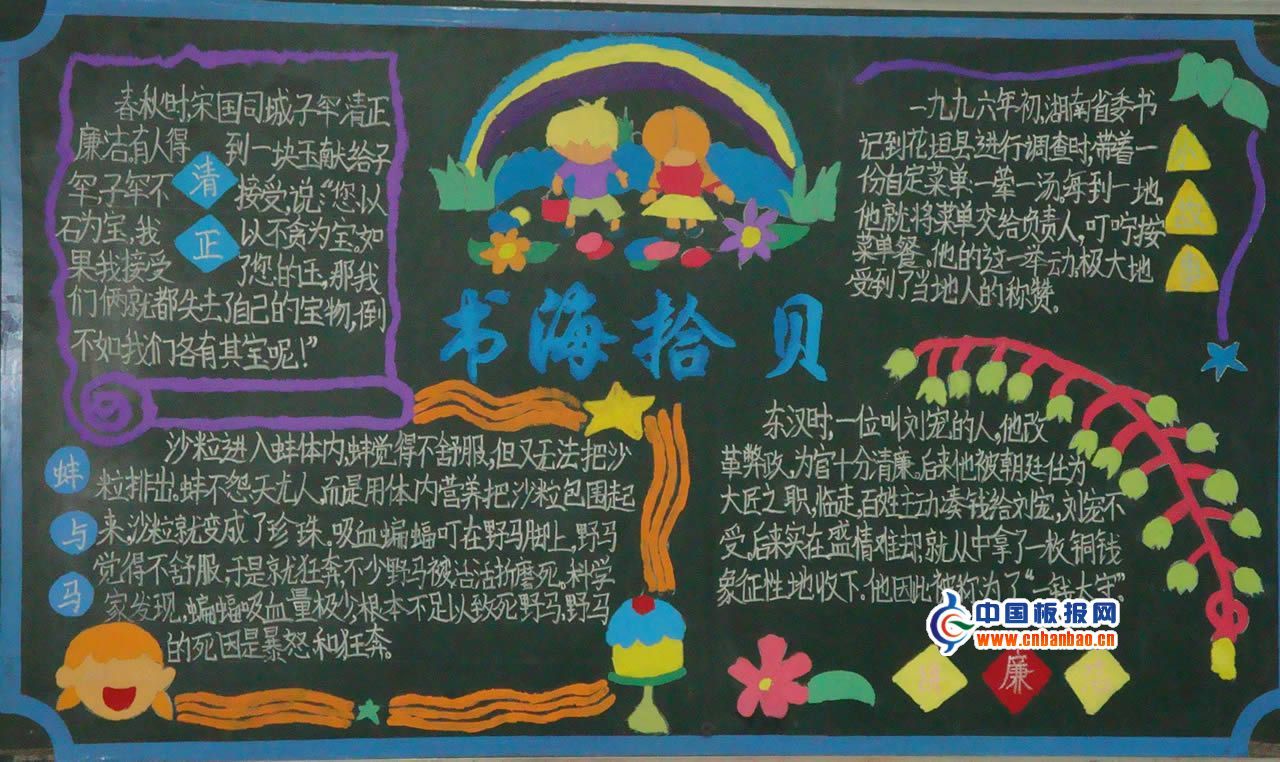 书海拾贝
春秋时,宋国司城子罕清正
廉洁.有人得 到一块玉献给子
罕,子罕不 接受,说:“您以
石为宝,我 以不贪为宝.如
果我接受 了您的玉,那我
们俩就都失去了自己的宝物,倒
不如我们各有其宝呢!”
清
正
一九九六年初,湖南省委书
记到花垣县进行调查时,带着一
份自定菜单:一荤一汤.每到一地.
他就将菜单交给负责人,叮咛按
菜单餐.他的这一举动,极大地
受到了当地人的称赞。
蚌
与
马
沙粒进入蚌体内,蚌觉得不舒服,但又无法把沙
粒排出.蚌不怨天尤人,而是用体内营养把沙粒包围起
来,沙粒就变成了珍珠.吸血蝙蝠叮在野马脚上,野马
觉得不舒服,于是就狂奔,不少野马被活活折磨死.科学
家发现,蝙蝠吸血量极少,根本不足以致死野马,野马
的死因是暴怒和狂奔.
东汉时,一位叫刘宠的人,他改
革弊政,为官十分清廉.后来他被朝廷任为
大匠之职,临走,百姓主动凑钱给刘宠,刘宠不
受.后来实在盛情难却,就从中拿了一枚铜钱
象征性地收下.他因此被称为了“一钱太守”.
廉
中国板报网
www.cnbanbao.cn